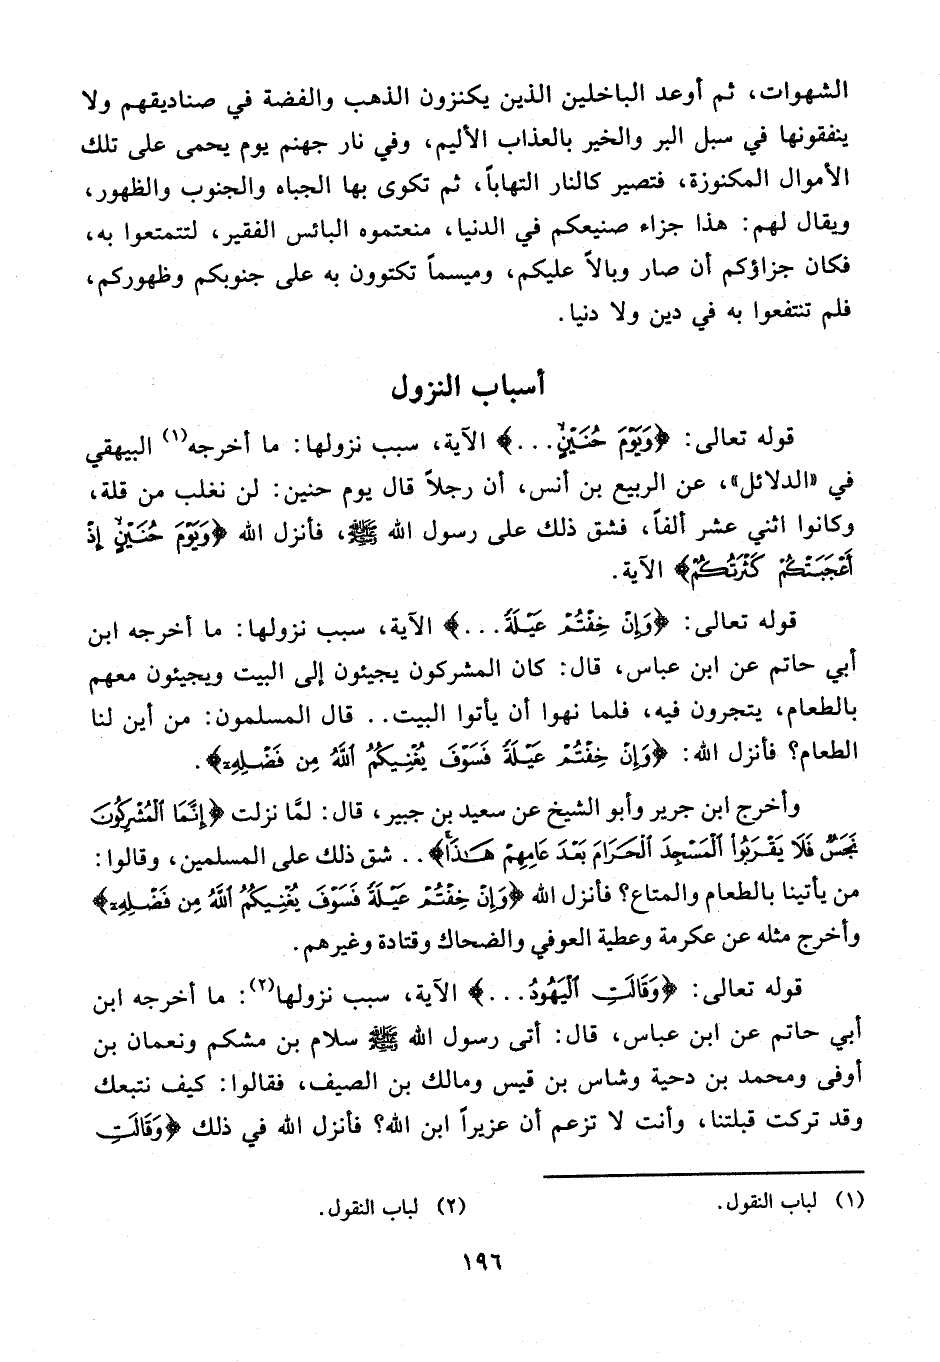 الشهوات، ثم أوعد الباخلين الذين يكنزون الذهب والفضة في صناديقهم ولا
ينفقونها في سبل البر والخير بالعذاب الأليم، وفي نار جهنم يوم يحمى على تلك
الأموال المكنوزة، فتصير كالنار التهاباً، ثم تكوى بها الجباه والجنوب والظهور،
ويقال لهم: هذا جزاء صنيعكم في الدنيا، منعتموه البائس الفقير، لتتمتعوا به،
فكان جزاؤكم أن صار وبالاً عليكم، وميسماً تكتوون به على جنوبكم وظهوركم،
فلم تنتفعوا به في دين ولا دنيا.
أسباب النزول
قوله تعالى: ﴿وَيَوْمَ حُنَيْنٍ...﴾ الآية، سبب نزولها: ما أخرجه(١) البيهقي
في «الدلائل»، عن الربيع بن أنس، أن رجلاً قال يوم حنين: لن نغلب من قلة،
وكانوا اثني عشر ألفاً، فشق ذلك على رسول الله ﷺ، فأنزل الله ﴿وَيَوْمَ حُنَيْنٍ إِذْ
أَعْجَبَتْكُمْ كَثْرَتُكُمْ﴾ الآية.
قوله تعالى: ﴿وَإِنْ خِفْتُمْ عَيْلَةً...﴾ الآية، سبب نزولها: ما أخرجه ابن
أبي حاتم عن ابن عباس، قال: كان المشركون يجيئون إلى البيت ويجيئون معهم
بالطعام، يتجرون فيه، فلما نهوا أن يأتوا البيت.. قال المسلمون: من أين لنا
الطعام؟ فأنزل الله: ﴿وَإِنْ خِفْتُمْ عَيْلَةً فَسَوْفَ يُغْنِيكُمُ ٱللَّهُ مِن فَضْلِهِۦ﴾.
وأخرج ابن جرير وأبو الشيخ عن سعيد بن جبير، قال: لمَّا نزلت ﴿إِنَّمَا ٱلْمُشْرِكُونَ
نَجَسٌ فَلَا يَقْرَبُوا۟ ٱلْمَسْجِدَ ٱلْحَرَامَ بَعْدَ عَامِهِمْ هَـٰذَا﴾.. شق ذلك على المسلمين، وقالوا:
من يأتينا بالطعام والمتاع؟ فأنزل الله ﴿وَإِنْ خِفْتُمْ عَيْلَةً فَسَوْفَ يُغْنِيكُمُ ٱللَّهُ مِن فَضْلِهِۦ﴾
وأخرج مثله عن عكرمة وعطية العوفي والضحاك وقتادة وغيرهم.
قوله تعالى: ﴿وَقَالَتِ ٱلْيَهُودُ...﴾ الآية، سبب نزولها(٢): ما أخرجه ابن
أبي حاتم عن ابن عباس، قال: أتى رسول الله ﷺ سلام بن مشكم ونعمان بن
أوفى ومحمد بن دحية وشاس بن قيس ومالك بن الصيف، فقالوا: كيف نتبعك
وقد تركت قبلتنا، وأنت لا تزعم أن عزيراً ابن الله؟ فأنزل الله في ذلك ﴿وَقَالَتِ
(١) لباب النقول. (٢) لباب النقول.
١٩٦